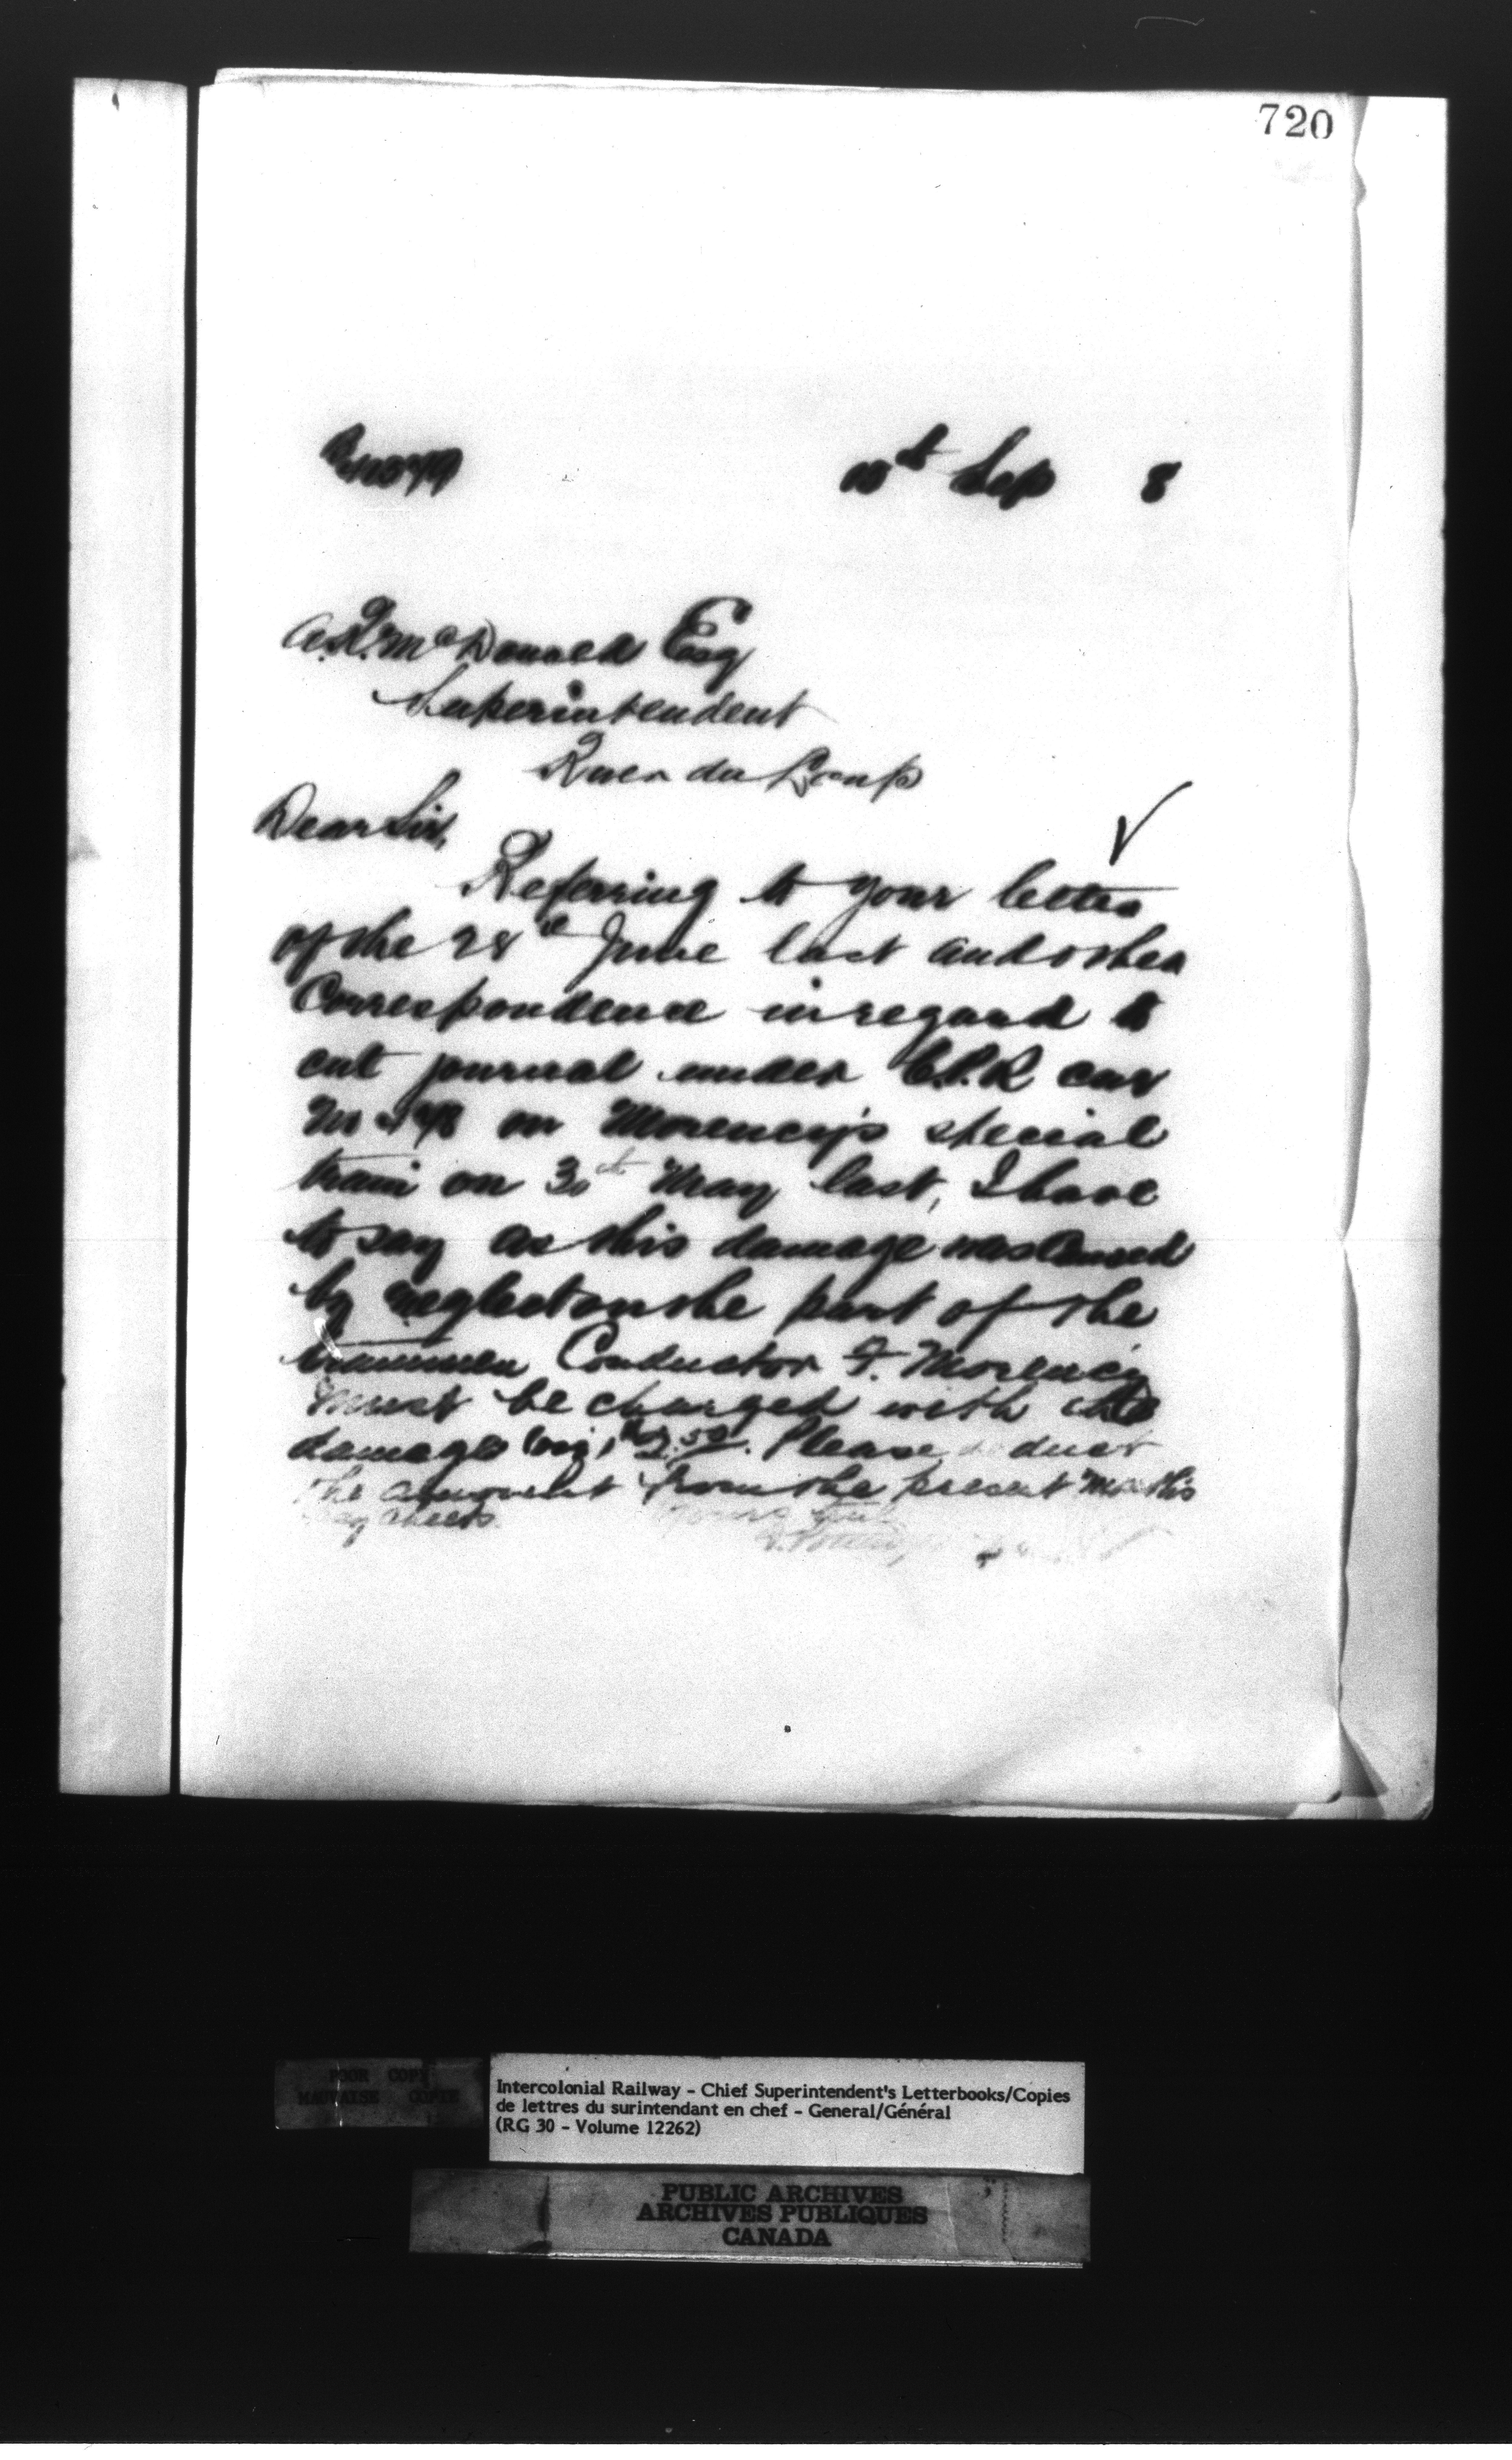 720
10th Sep 8
A.R. McDonald Esq
Superintendent
River du Loup
Dear Sir,
Referring to your letter
of the 28th June last and other
Correspondence in regard to
cut journal under C.P.R car
No on Morency's special
train on 30th May last, I have
to say as this damage was Caused
by neglect on the part of the
trainmen Conductor F. Morency
must be charged with the
damages viz, $2.50. Please deduct
the amount from the present months
pay sheets.
Yours truly
POOR COPY
MAUVAISE COPIE
Intercolonial Railway - Chief Superintendent's Letterbooks/Copies
de lettres du surintendant en chef - General/Général
(RG 30 - Volume 12262)
PUBLIC ARCHIVES
ARCHIVES PUBLIQUES
CANADA